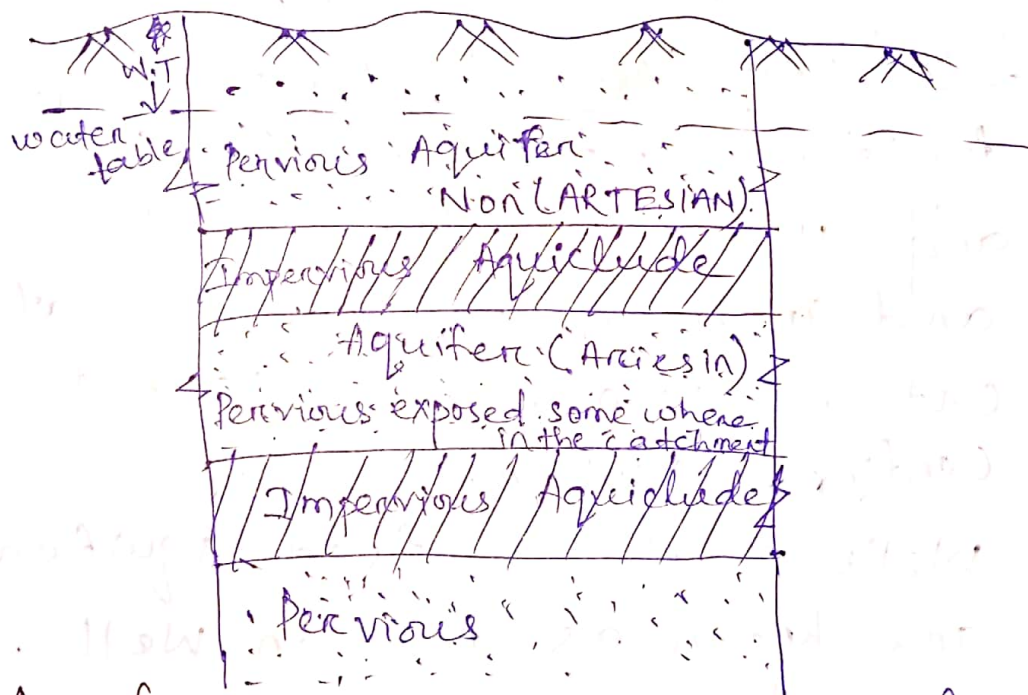 W.T
water
table
Pervious Aquifer
Non (ARTESIAN)
Impervious Aquiclude
Aquifer (Artesin)
Pervious exposed some where
in the catchment
Impervious Aquiclude
Pervious